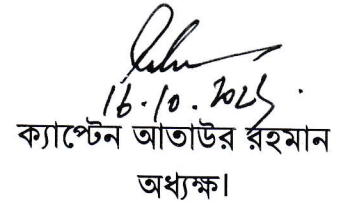 16.10.2025
ক্যাপ্টেন আতাউর রহমান
অধ্যক্ষ।